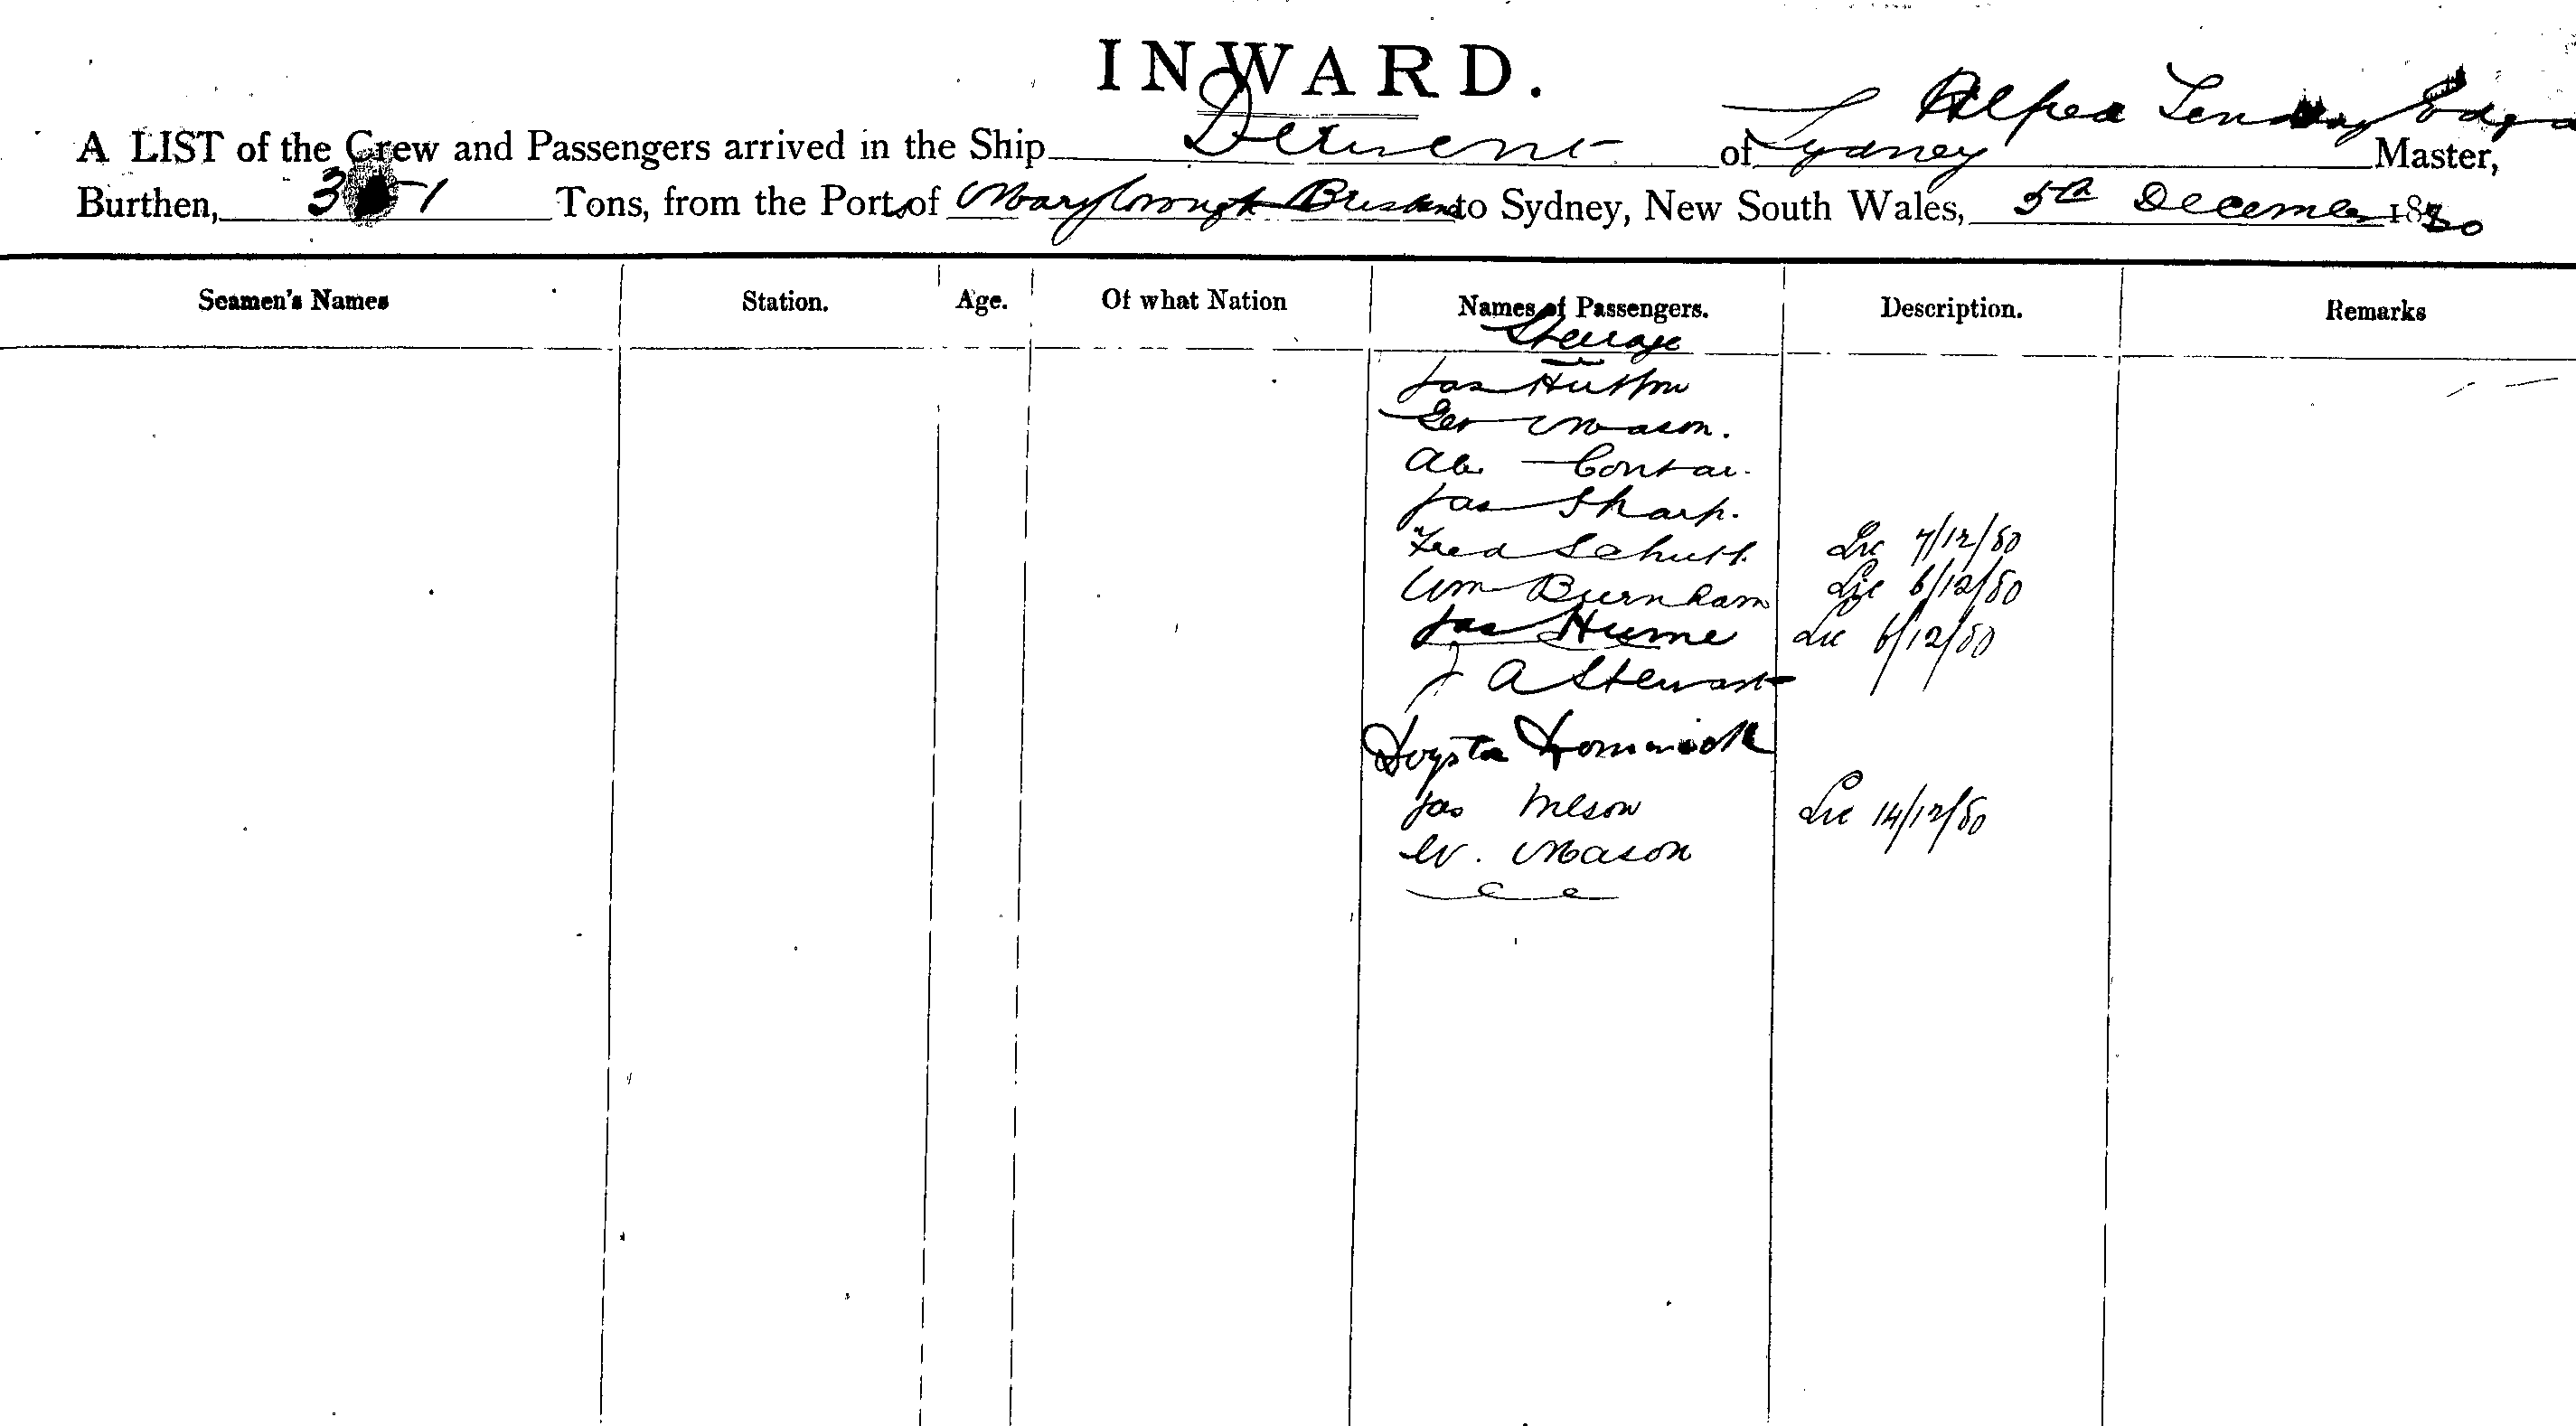 INWARD.
A LIST of the Crew and Passengers arrived in the Ship Derwent of Sydney Alfred Edgar Master,
Burthen, 3 1 Tons, from the Ports of Maryborough Brisbane to Sydney, New South Wales, 5th December 1880
Seamen's Names Station. Age. Of what Nation Names of Passengers. Description. Remarks
Steerage
Jas Hutton
Geo Mason.
Jas Sharp.
Fred Schutt Lic 7/12/80
Wm Burnham Lic 6/12/80
Jas Hume Lic 6/12/80
J A Stewart
Jas Lic 14/12/80
W. Mason